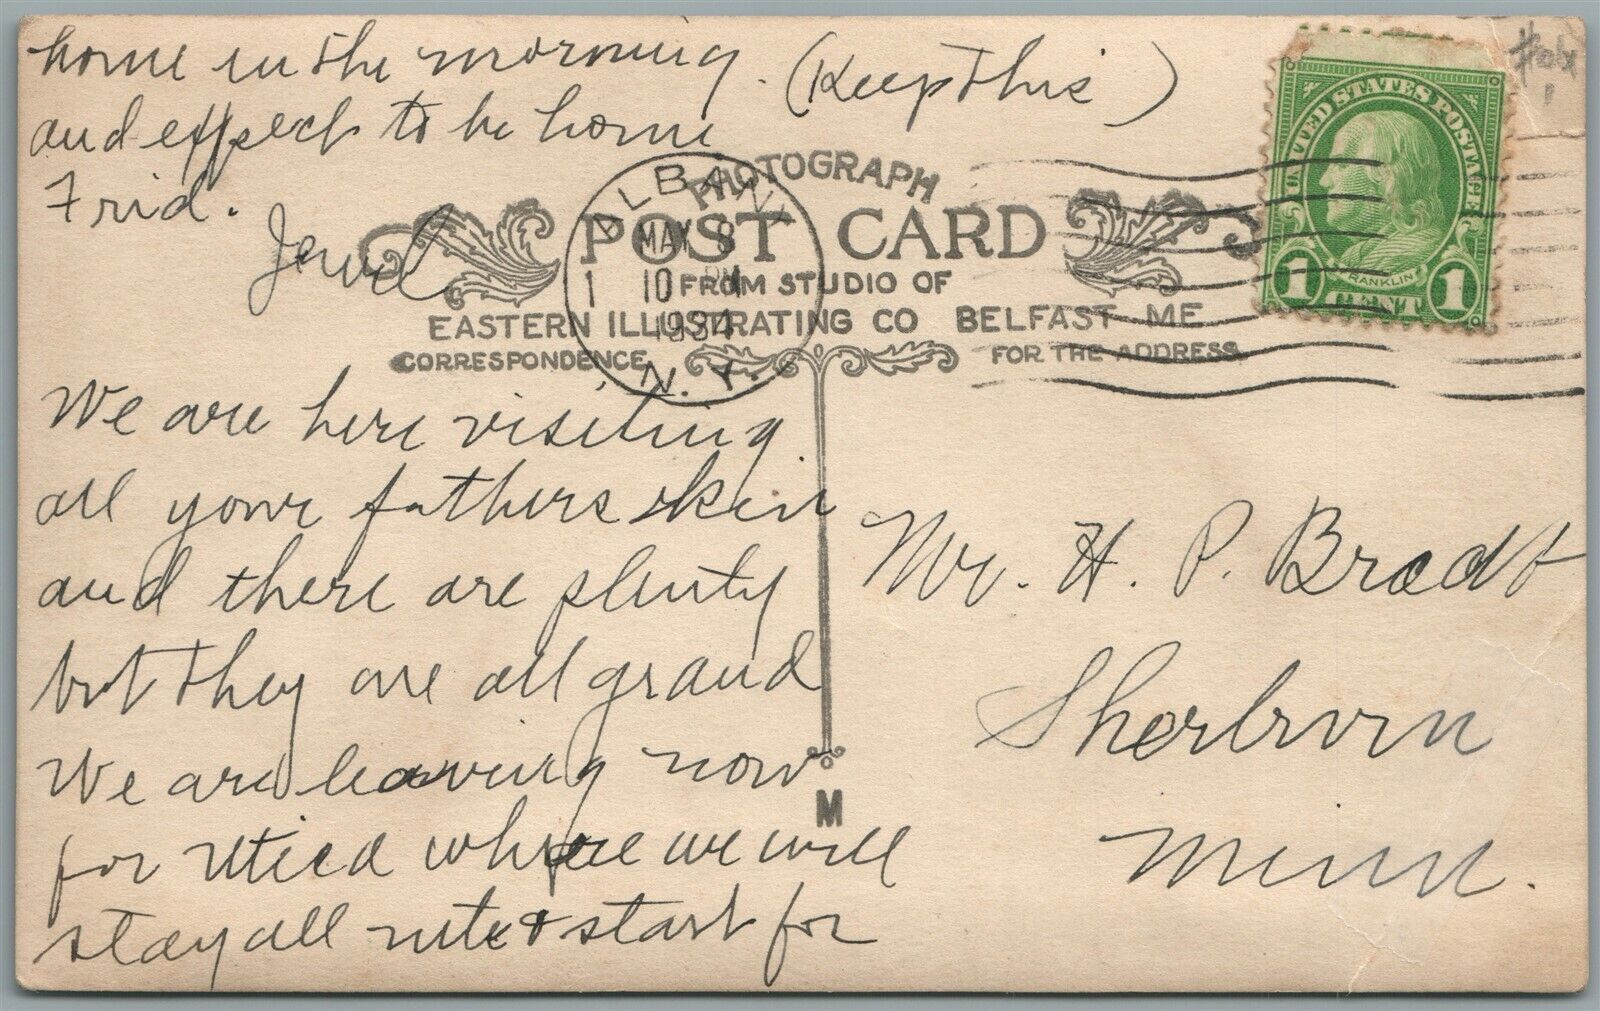 home in the morning. (Keep this)
and expect to be home
Frid.
Jewel
PHOTOGRAPH
POST CARD
FROM STUDIO OF
EASTERN ILLUSTRATING CO BELFAST ME
CORRESPONDENCE
FOR THE ADDRESS
ALBANY
MAY 8
10 PM
1934
N.Y.
1
UNITED STATES POSTAGE
FRANKLIN
1 CENT 1
We are here visiting
all your fathers kin
and there are plenty
but they are all grand
We are leaving now
for Utica where we will
stay all nite & start for
M
Mr. H. P. Bradt
Sherburn
Minn.